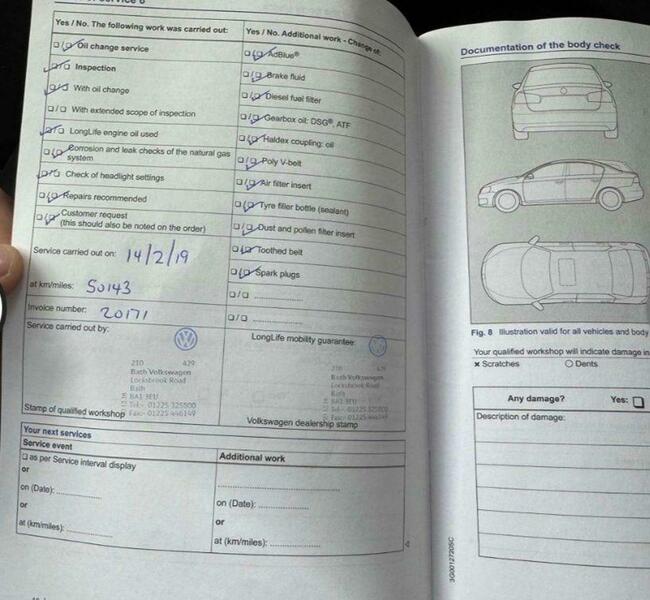 Yes / No. The following work was carried out:
☐/☐ Oil change service
☐/☐ Inspection
☐/☐ With oil change
☐/☐ With extended scope of inspection
☐/☐ LongLife engine oil used
☐/☐ Corrosion and leak checks of the natural gas
system
☐/☐ Check of headlight settings
☐/☐ Repairs recommended
☐/☐ Customer request
(this should also be noted on the order)
Service carried out on: 14/2/19
at km/miles: 50143
Invoice number: 20171
Service carried out by:
210 429
Bath Volkswagen
Locksbrook Road
Bath
BA1 3EU
Tel:- 01225 325800
Fax:- 01225 446149
Stamp of qualified workshop
Yes / No. Additional work - Change of:
☐/☐ AdBlue®
☐/☐ Brake fluid
☐/☐ Diesel fuel filter
☐/☐ Gearbox oil: DSG®, ATF
☐/☐ Haldex coupling: oil
☐/☐ Poly V-belt
☐/☐ Air filter insert
☐/☐ Tyre filler bottle (sealant)
☐/☐ Dust and pollen filter insert
☐/☐ Toothed belt
☐/☐ Spark plugs
☐/☐ ....................
☐/☐ ....................
LongLife mobility guarantee:
210 429
Bath Volkswagen
Locksbrook Road
Bath
BA1 3EU
Tel:- 01225 325800
Fax:- 01225 446149
Volkswagen dealership stamp
Your next services
Service event
☐ as per Service interval display
or
on (Date): ....................
or
at (km/miles): ....................
Additional work
..............................
on (Date): ....................
or
at (km/miles): ....................
Documentation of the body check
Fig. 8 Illustration valid for all vehicles and body
Your qualified workshop will indicate damage in
× Scratches ○ Dents
Any damage? Yes: ☐
Description of damage:
3G0012720SC